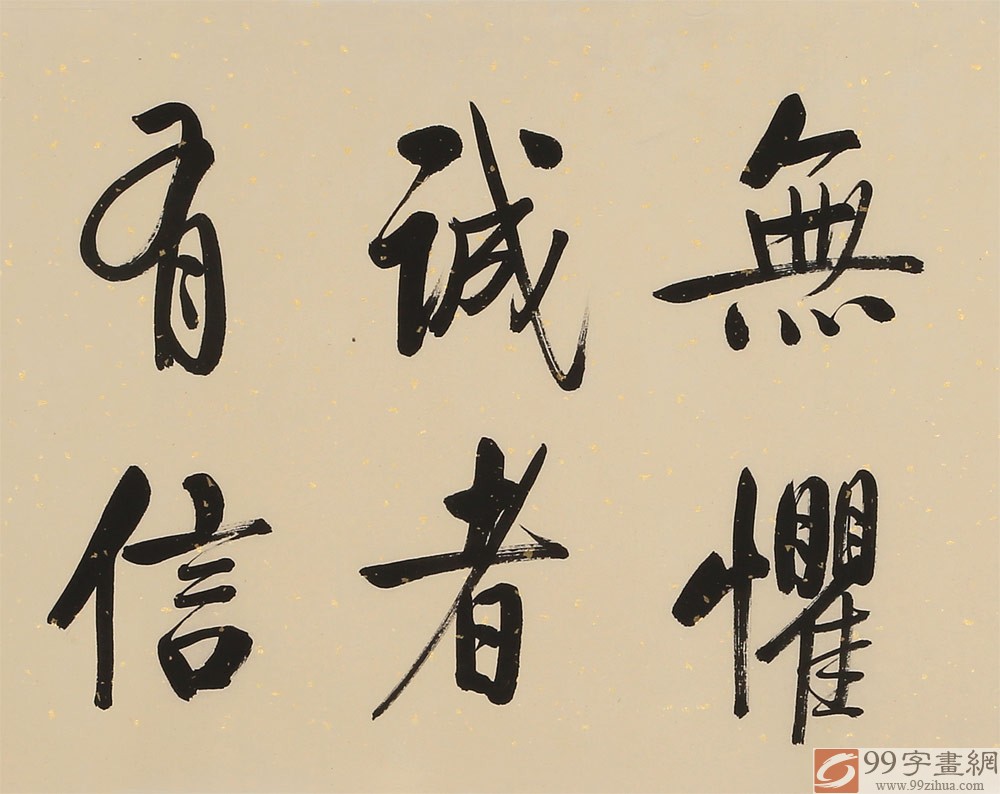 無懼
誠者
有信
99字畫網
www.99zihua.com